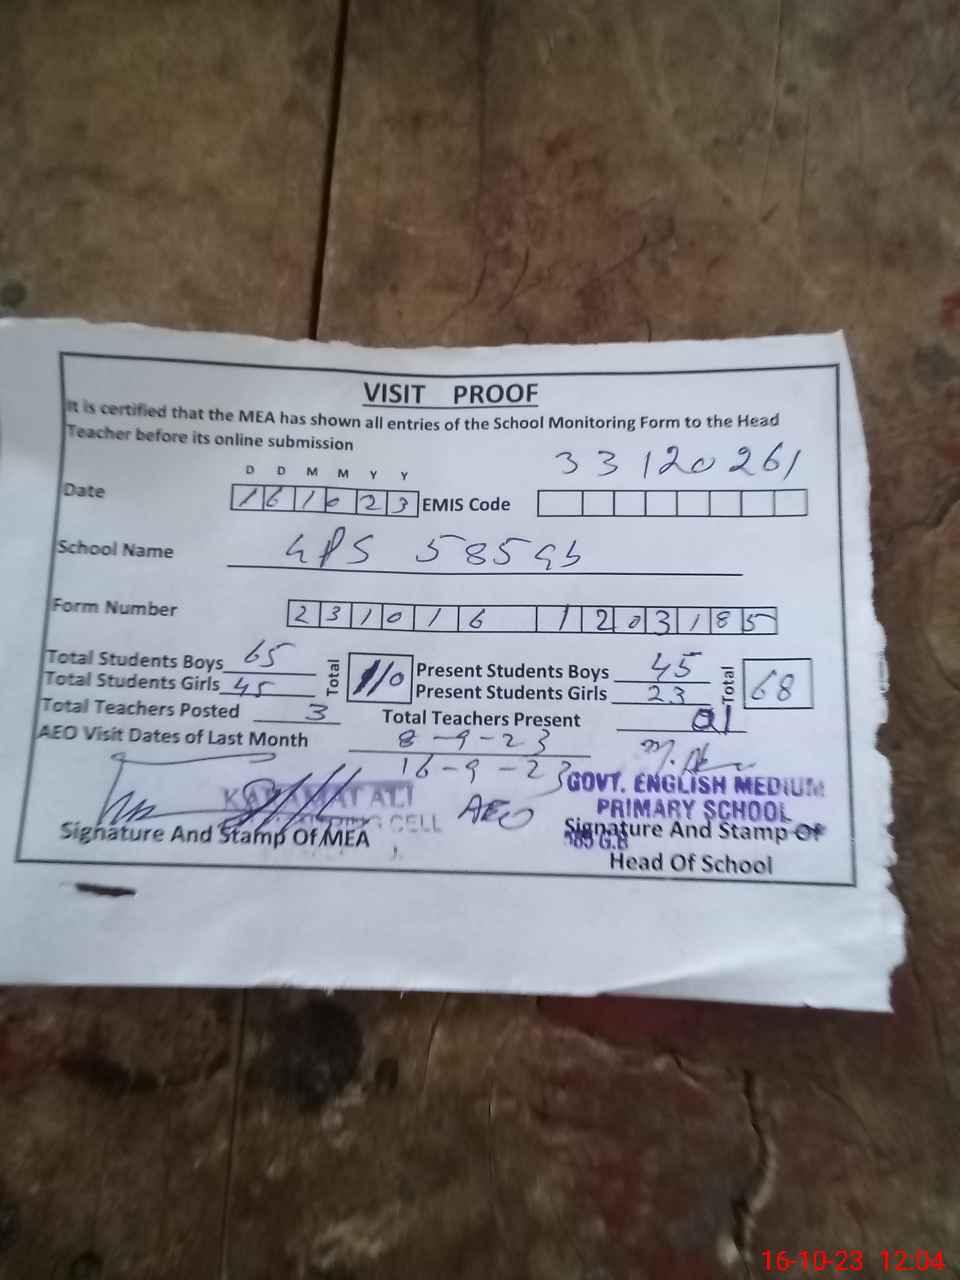 VISIT PROOF
It is certified that the MEA has shown all entries of the School Monitoring Form to the Head
Teacher before its online submission
D D M M Y Y
33120261
Date 161023 EMIS Code
School Name GPS 585 GB
Form Number 231016 1203185
Total Students Boys 65 Total 110 Present Students Boys 45 Total 68
Total Students Girls 45 Present Students Girls 23
Total Teachers Posted 3 Total Teachers Present 01
AEO Visit Dates of Last Month 8-9-23
16-9-23
AEO
ALI
CELL
GOVT. ENGLISH MEDIUM
PRIMARY SCHOOL
585 G.B
Signature And Stamp Of MEA
Signature And Stamp Of
Head Of School
16-10-23 12:04